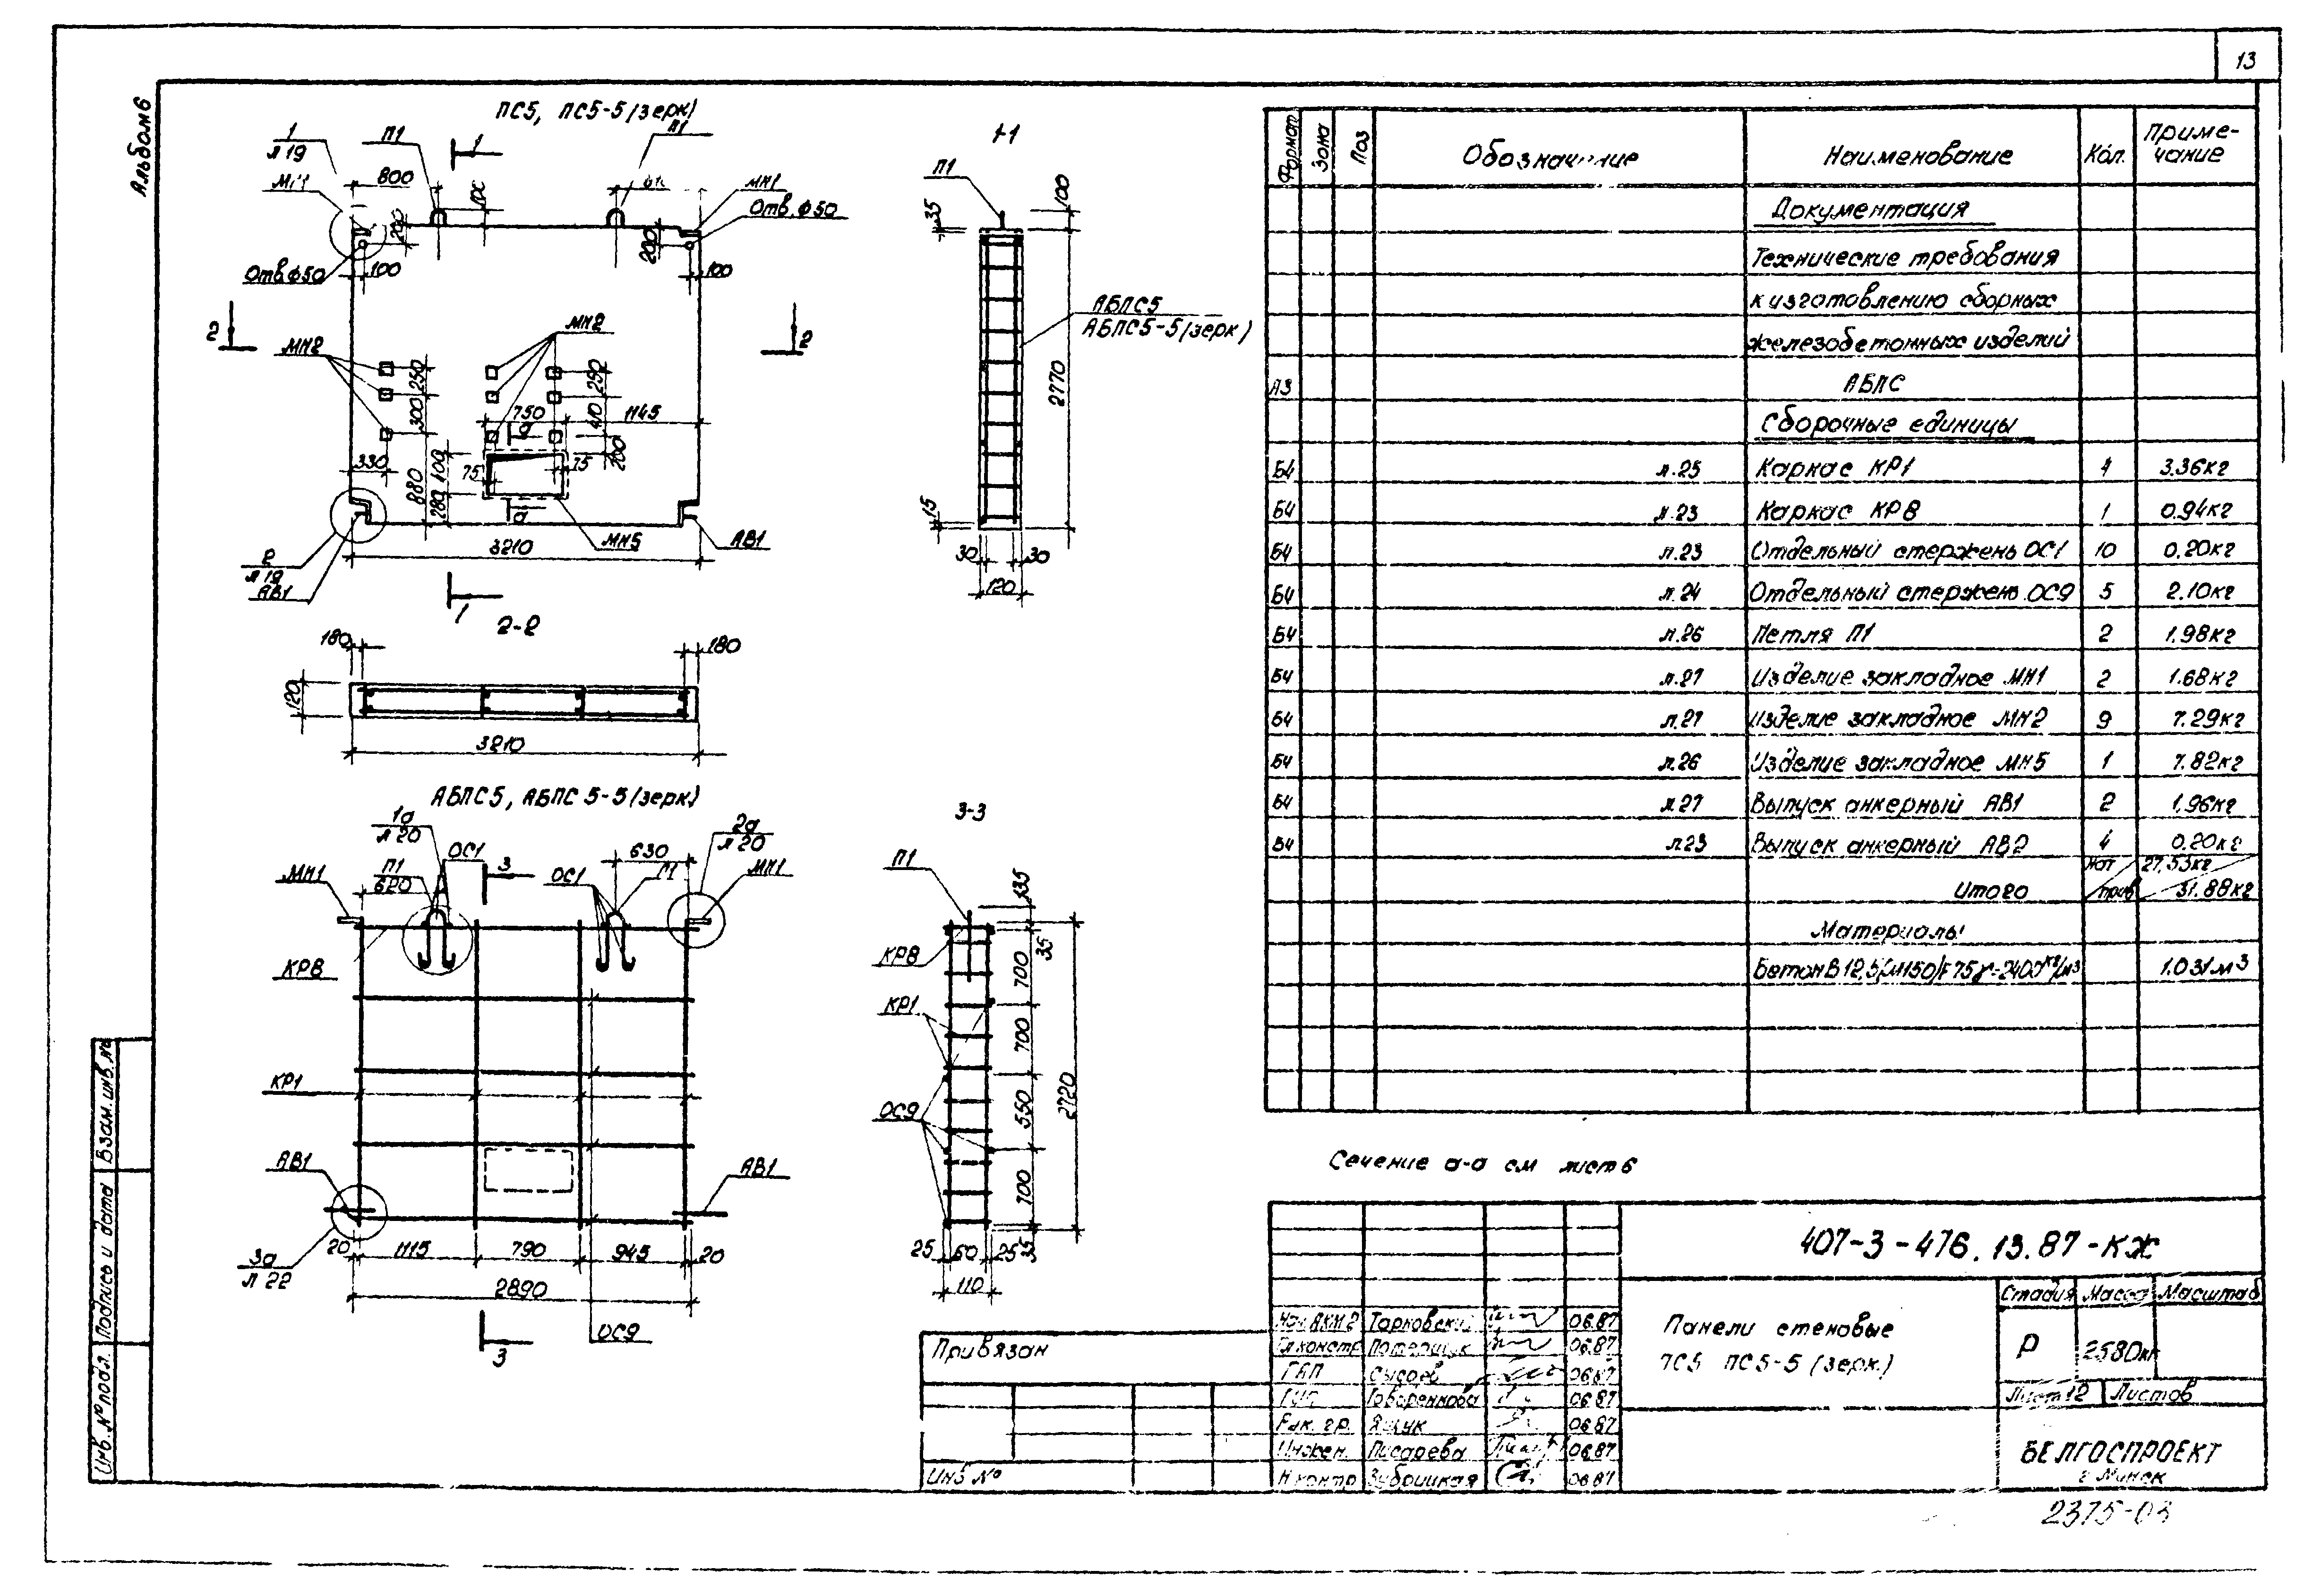 13
Альбом 6
ПС5, ПС5-5 (зерк)
1
л 19
П1
1
П1
МН1
800
100
МН1
Отв. ф50
200
200
Отв ф50
100
100
2
2
МН2
МН2
250
250
300
750
410
1145
а
330
75
75
200
880
280
400
а
МН5
АВ1
3210
2
л 19
АВ1
1
1-1
П1
100
35
АБПС5
АБПС5-5 (зерк)
2770
15
30
30
120
2-2
180
180
120
3210
АБПС5, АБПС 5-5 (зерк)
1а
л 20
ОС1
3
2а
л 20
630
П1
МН1
620
ОС1
П1
МН1
КР8
КР1
АВ1
АВ1
3а
л 22
20
1115
790
945
20
2890
ОС9
3
3-3
П1
135
35
КР8
700
КР1
700
2720
ОС9
550
700
25
60
25
35
110
Формат
Зона
Поз
Обозначение
Наименование
Кол.
Приме-
чание
Документация
Технические требования
к изготовлению сборных
железобетонных изделий
А3 АБПС
Сборочные единицы
Б4 л.25 Каркас КР1 4 3.36кг
Б4 л.23 Каркас КР8 1 0.94кг
Б4 л.23 Отдельный стержень ОС1 10 0.20кг
Б4 л.24 Отдельный стержень ОС9 5 2.10кг
Б4 л.26 Петля П1 2 1.98кг
Б4 л.27 Изделие закладное МН1 2 1.68кг
Б4 л.27 Изделие закладное МН2 9 7.29кг
Б4 л.26 Изделие закладное МН5 1 7.82кг
Б4 л.27 Выпуск анкерный АВ1 2 1.96кг
Б4 л23 Выпуск анкерный АВ2 4 0.20кг
нат 27,53кг
Итого прив 31.88кг
Материалы
Бетон В 12,5 (М150) F75 γ=2400кг/м3 1.031м3
Сечение а-а см лист 6
407-3-476.13.87-КЖ
Панели стеновые
ПС5 ПС5-5 (зерк.)
Стадия Масса Масштаб
Р 2580кг
Лист 12 Листов
БЕЛГОСПРОЕКТ
г Минск
Нач АКМ 2 Тарковский 06.87
Гл констр 06.87
ГАП Сысоев 06.87
Говоренкова 06.87
Рук. гр. Яцук 06.87
Инжен. Писарева 06.87
Н контр Зубрицкая 06.87
Привязан
Инв №
Инв. № подл.
Подпись и дата
Взам. инв. №
2375-03